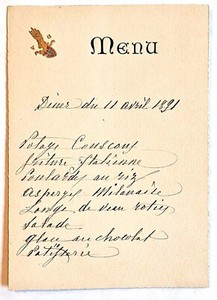 Menu
Diner du 11 avril 1891
Potage Couscous
friture Italienne
Poularde au riz
asperges Milanaise
Longe de veau rotie
Salade
glace au chocolat
Patisserie